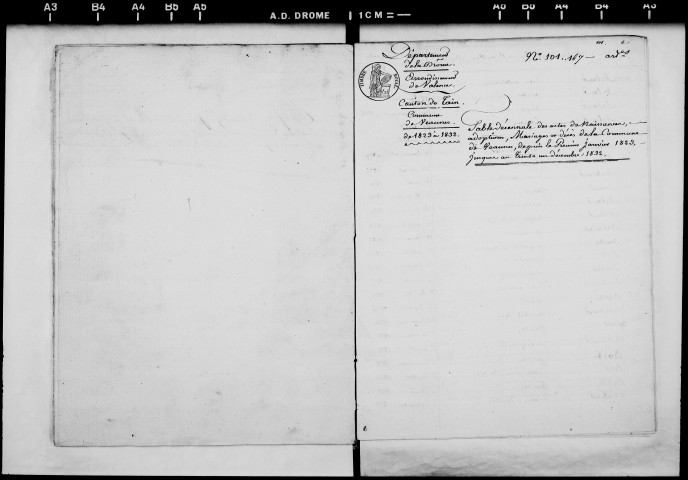 A3 B4 A4 B5 A5
A.D. DROME 1CM
A4 B4
Département
de la Drôme.
Arrondissement
de Valence.
Canton de Tain.
Commune
de Veaunes.
de 1823 à 1832.
Nº 101..167
Table décennale des actes de Naissances,
adoptions, Mariages et décès de la Commune
de Veaunes, depuis le Premier janvier 1823,
jusques au trente un décembre 1832.